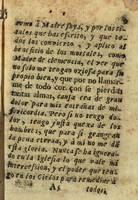 como à Madre suya, y por los tí-
tulos que has escrito, y que to-
dos los convierto, y aplico al
beneficio de los mortales, como
Madre de clemencia, el ver que
no solo me tengan ociosa para su
propio bien, y que por no llamar-
me de todo coraçon se pierdan
tantas almas, causa era de gran
dolor para mis entrañas de mi-
sericordia. Pero si no tengo do-
lor, tengo justa quexa de los
hombres, que para sí grangean
la pena eterna, y à mi no me dan
esta gloria. Nunca se ha ignora-
do en la Iglesia lo que vale mi
intercession, y el poder que ten-
go en los Cielos para
A 5 todos